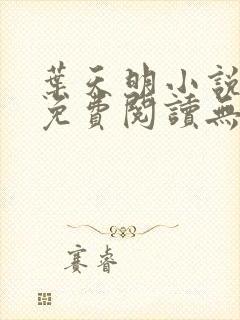 葉天明小說
免費閱讀無
賽睿